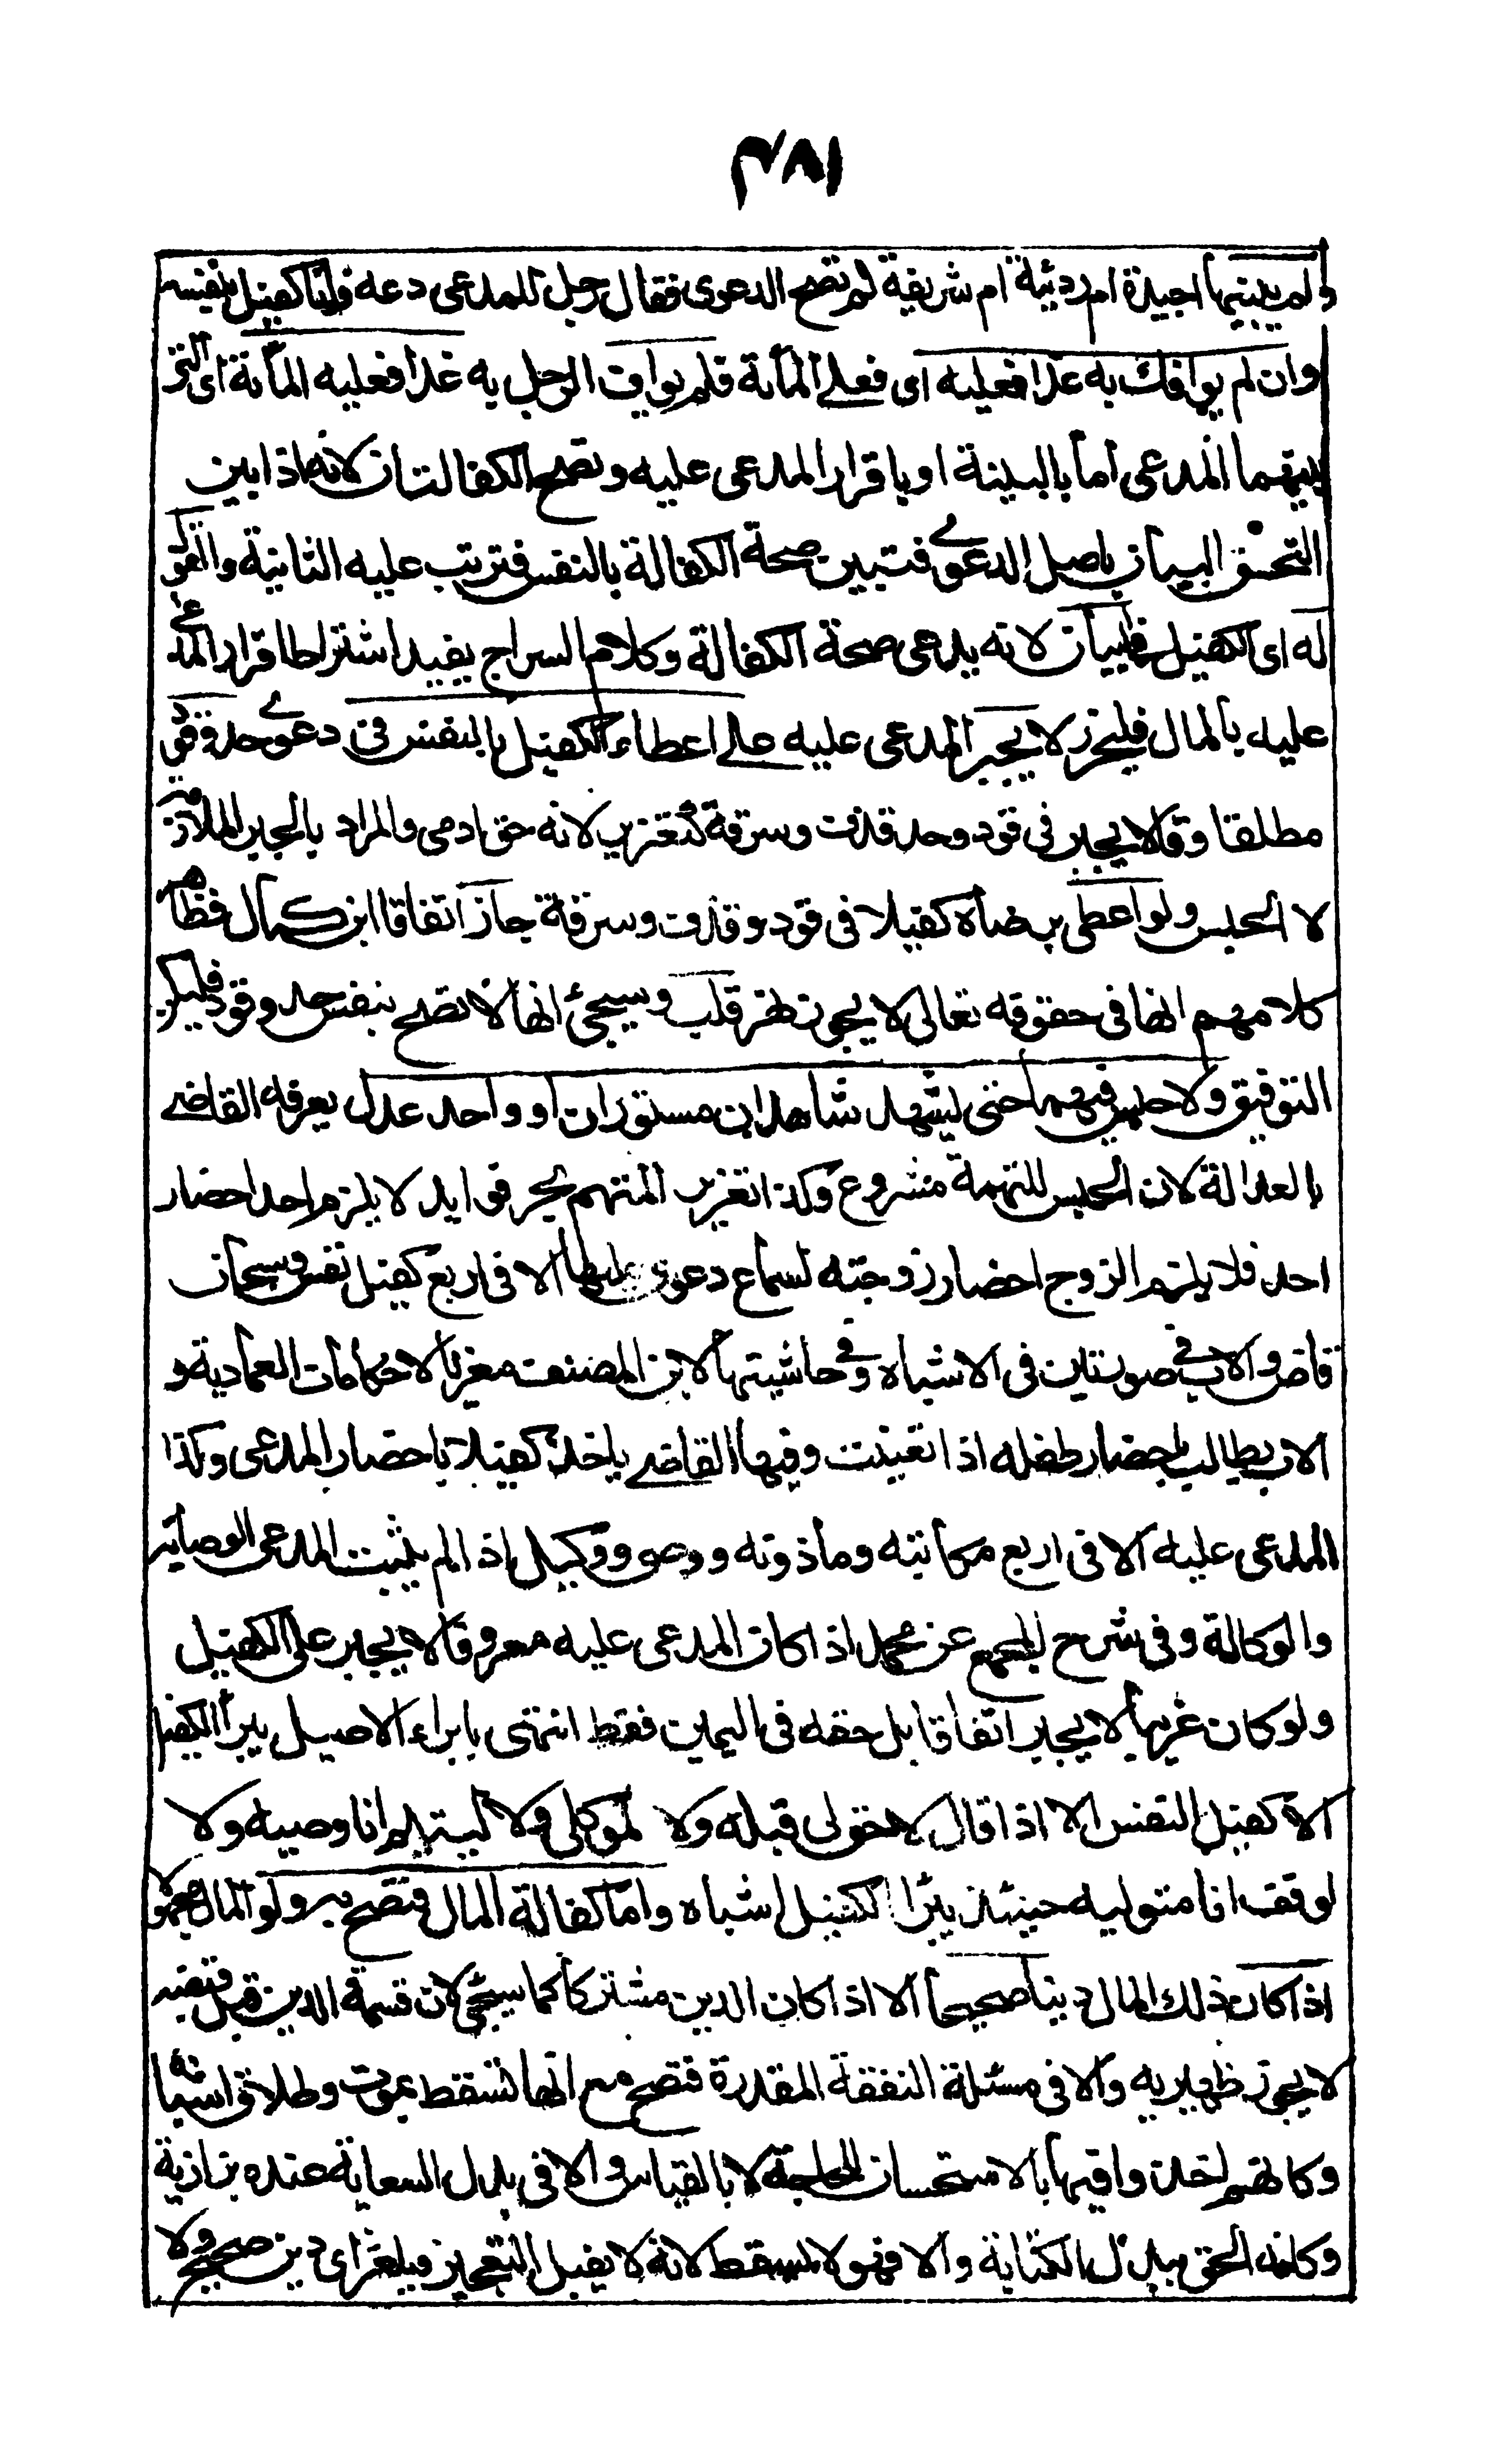 ٣٨١
ولم يبينها اجيدة ام رديئة ام شريفية لم تصح الدعوى فقال رجل للمدعى دعه وانا كفيل بنفسه
وان لم يوافك به غدا فعليه اى فعلى المأئة فلم يواف الرجل به غدا فعليه المأئة اى التى
بينهما المدعى اما بالبينة او باقرار المدعى عليه وتصح الكفالتان لانه اذا بين
التحق البيان باصل الدعوى فتبين صحة الكفالة بالنفس فترتب عليه الثانية والقول
له اى الكفيل فى البيان لانه يدعى صحة الكفالة وكلام السراج يفيد اشتراط اقرار المدعى
عليه بالمال فليحرر لا يجبر المدعى عليه على اعطاء الكفيل بالنفس فى دعوى حد وقود
مطلقا وقالا يجبر فى قود وحد قذف وسرقة كتعزير لانه حق ادمى والمراد بالجبر الملازمة
لا الحبس ولو اعطى برضاه كفيلا فى قود وقذف وسرقة جاز اتفاقا ابن كمال فظاهر
كلامهم انها فى حقوقه تعالى لا يجوز نظر قلت وسيجئ انها لا تصح بنفس حد وقود فليكن
التوفيق ولا حبس فيهما حتى يشهد شاهدان مستوران او واحد عدل يعرفه القاضى
بالعدالة لان الحبس للتهمة مشروع وكذا تعزير المتهم بحر فوايد لا يلزم احد احضار
احد فلا يلزم الزوج احضار زوجته لسماع دعوى عليها الا فى اربع كفيل نفس وسجان
قاض والاب فى صورتين فى الاشباه وفى حاشيتها لابن المصنف معزيا لاحكامات العمادية و
الاب يطالب باحضار طفله اذا تغيبت وفيها القاضى ياخذ كفيلا باحضار المدعى وكذا
المدعى عليه الا فى اربع مكاتبه ومأذونه ووصى ووكيل اذا لم يثبت المدعى الوصاية
والوكالة وفى شرح المجمع عن محمد اذا كان المدعى عليه معروفا لا يجبر على الكفيل
ولو كان غريبا لا يجبر اتفاقا بل حقه فى اليمين فقط انتهى بابراء الاصيل يبرأ الكفيل
الا كفيل النفس الا اذا قال لا حق لى قبله ولا لموكلى ولا ليتيم انا وصيه ولا
لوقف انا متوليه حينئذ يبرأ الكفيل اشباه واما كفالة المال فتصح به ولو المال مجهولا
اذا كان ذلك المال دينا صحيحا الا اذا كان الدين مشتركا كما سيجئ لان قسمة الدين قبل قبضه
لا يجوز ظهيريه والا فى مسئلة النفقة المقدرة فتصح مع انها تسقط بموت وطلاق اشباه
وكانهم اخذوا فيها بالاستحسان للحاجة لا بالقياس والا فى بدل السعاية عنده بزازية
وكانه الحق ببدل الكتابة والا فهو لا يسقط لانه لا يقبل التعجيز فيلغز اى دين صحيح ولا